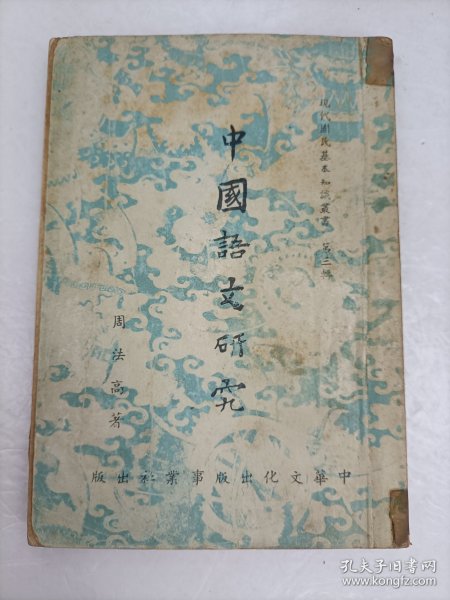 現代國民基本知識叢書 第三輯
中國語文研究
周法高著
中華文化出版事業社出版
孔夫子旧书网
www.kongfz.com